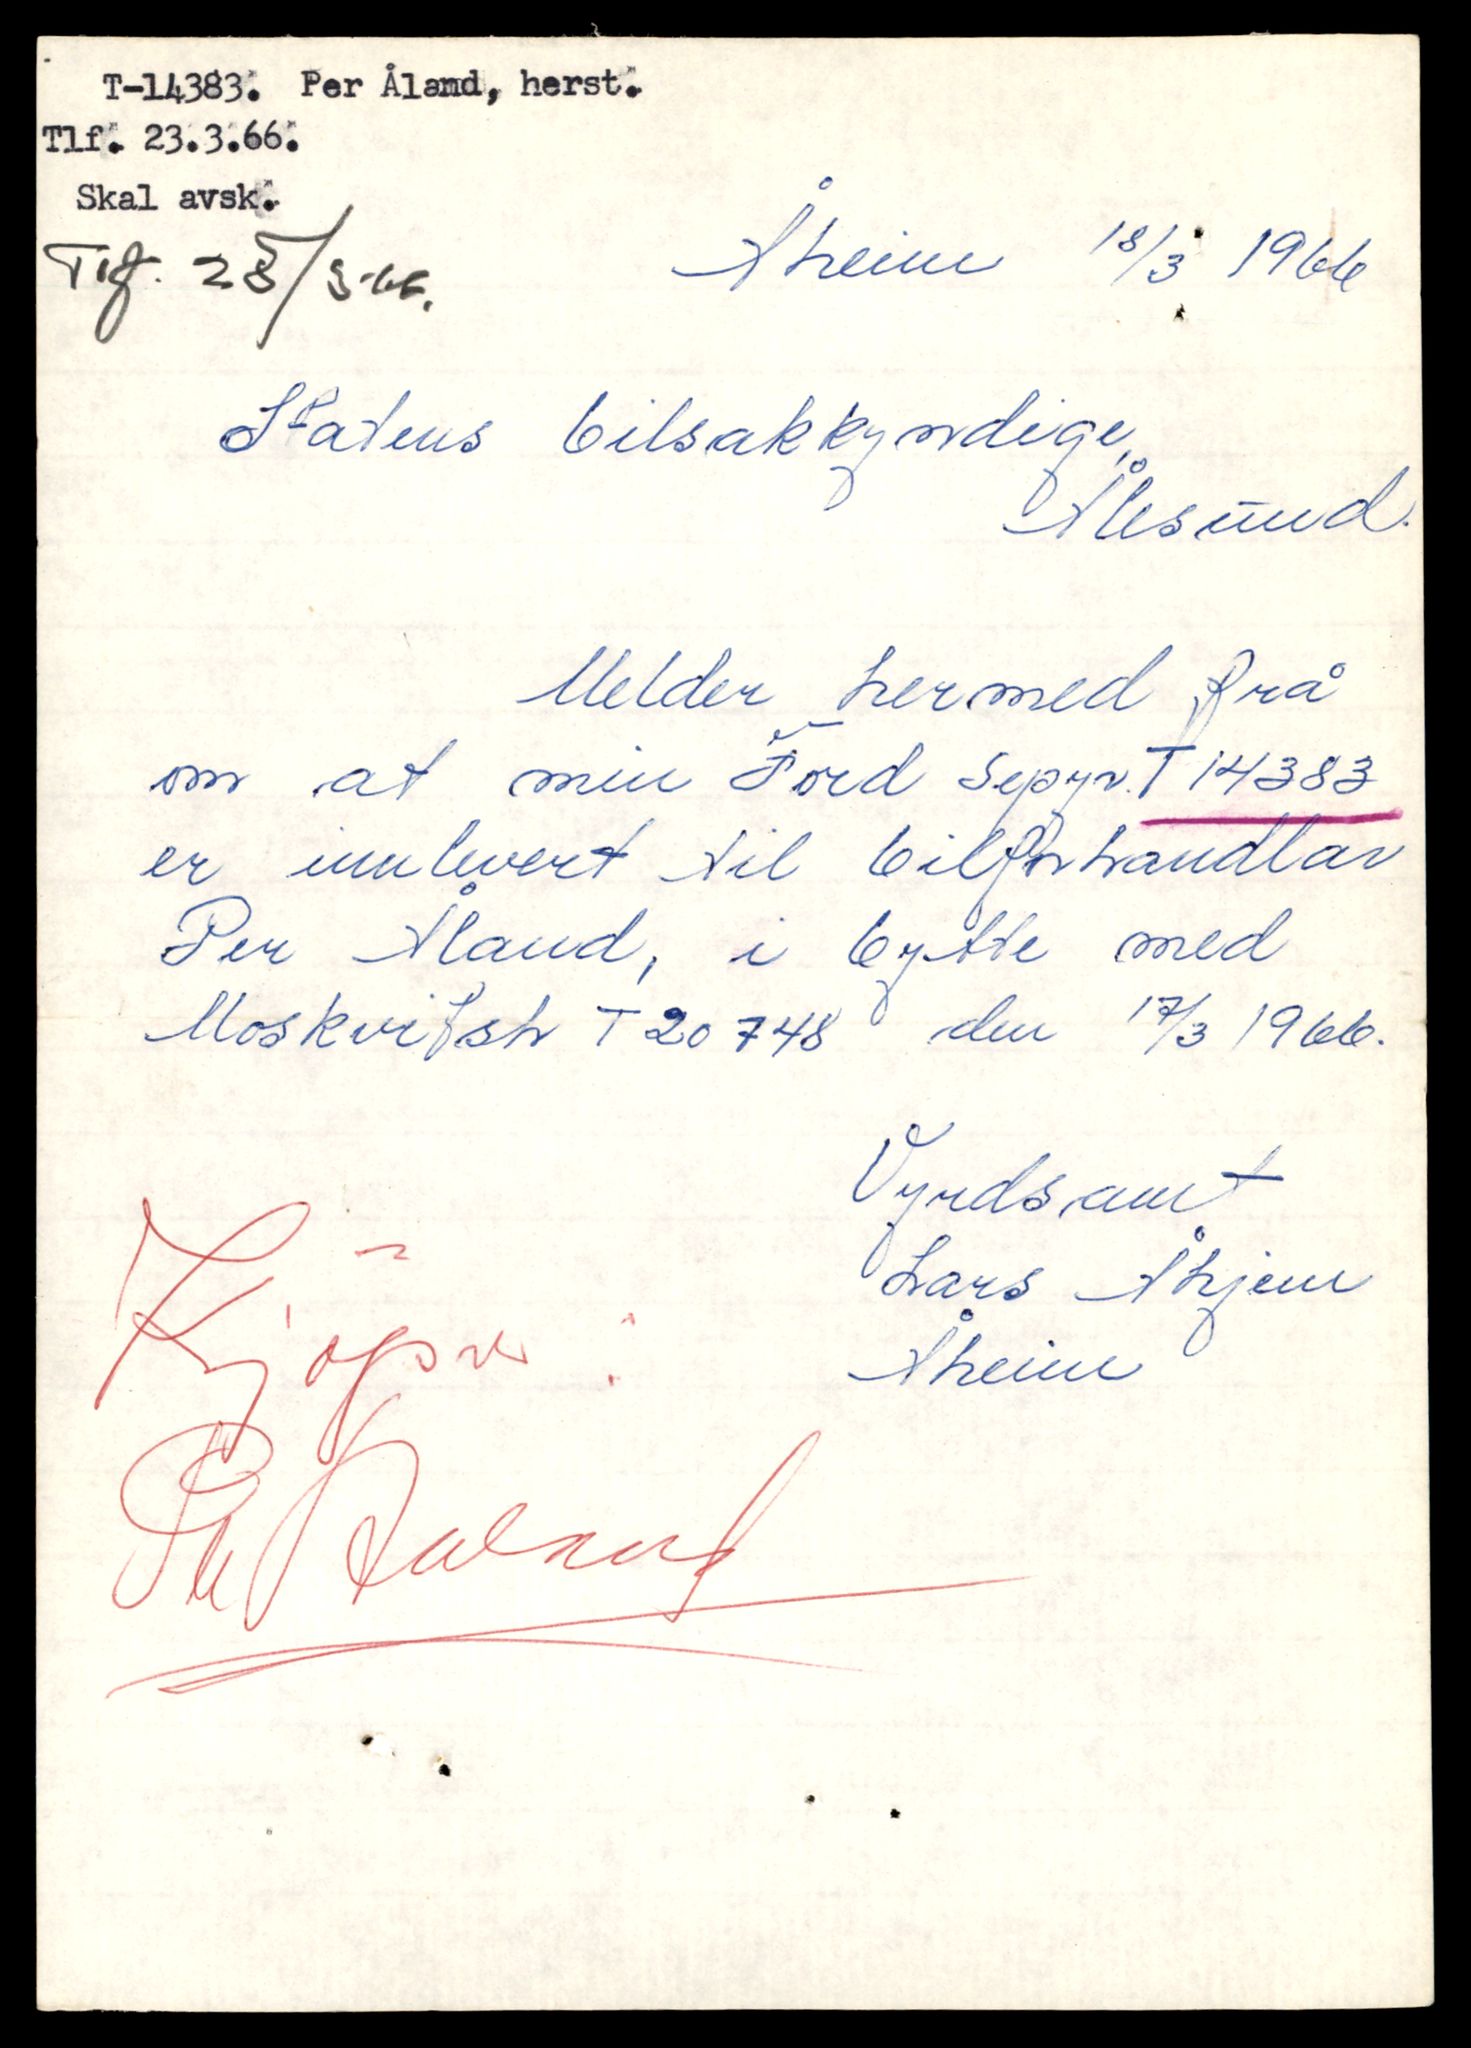 T-14383. Per Åland, herst.
Tlf. 23.3.66.
Skal avsk.
Tlf. 23/3-66.
Åheim 18/3 1966
Statens bilsakkyndige,
Ålesund.
Melder hermed frå
om at min Ford T 14383
er innlevert til bilforhandlar
Per Åland, i bytte med
Moskvitsh T 20748 den 17/3 1966.
Vyrdsamt
Lars Åhjem
Åheim
Kjöper:
Per Aaland